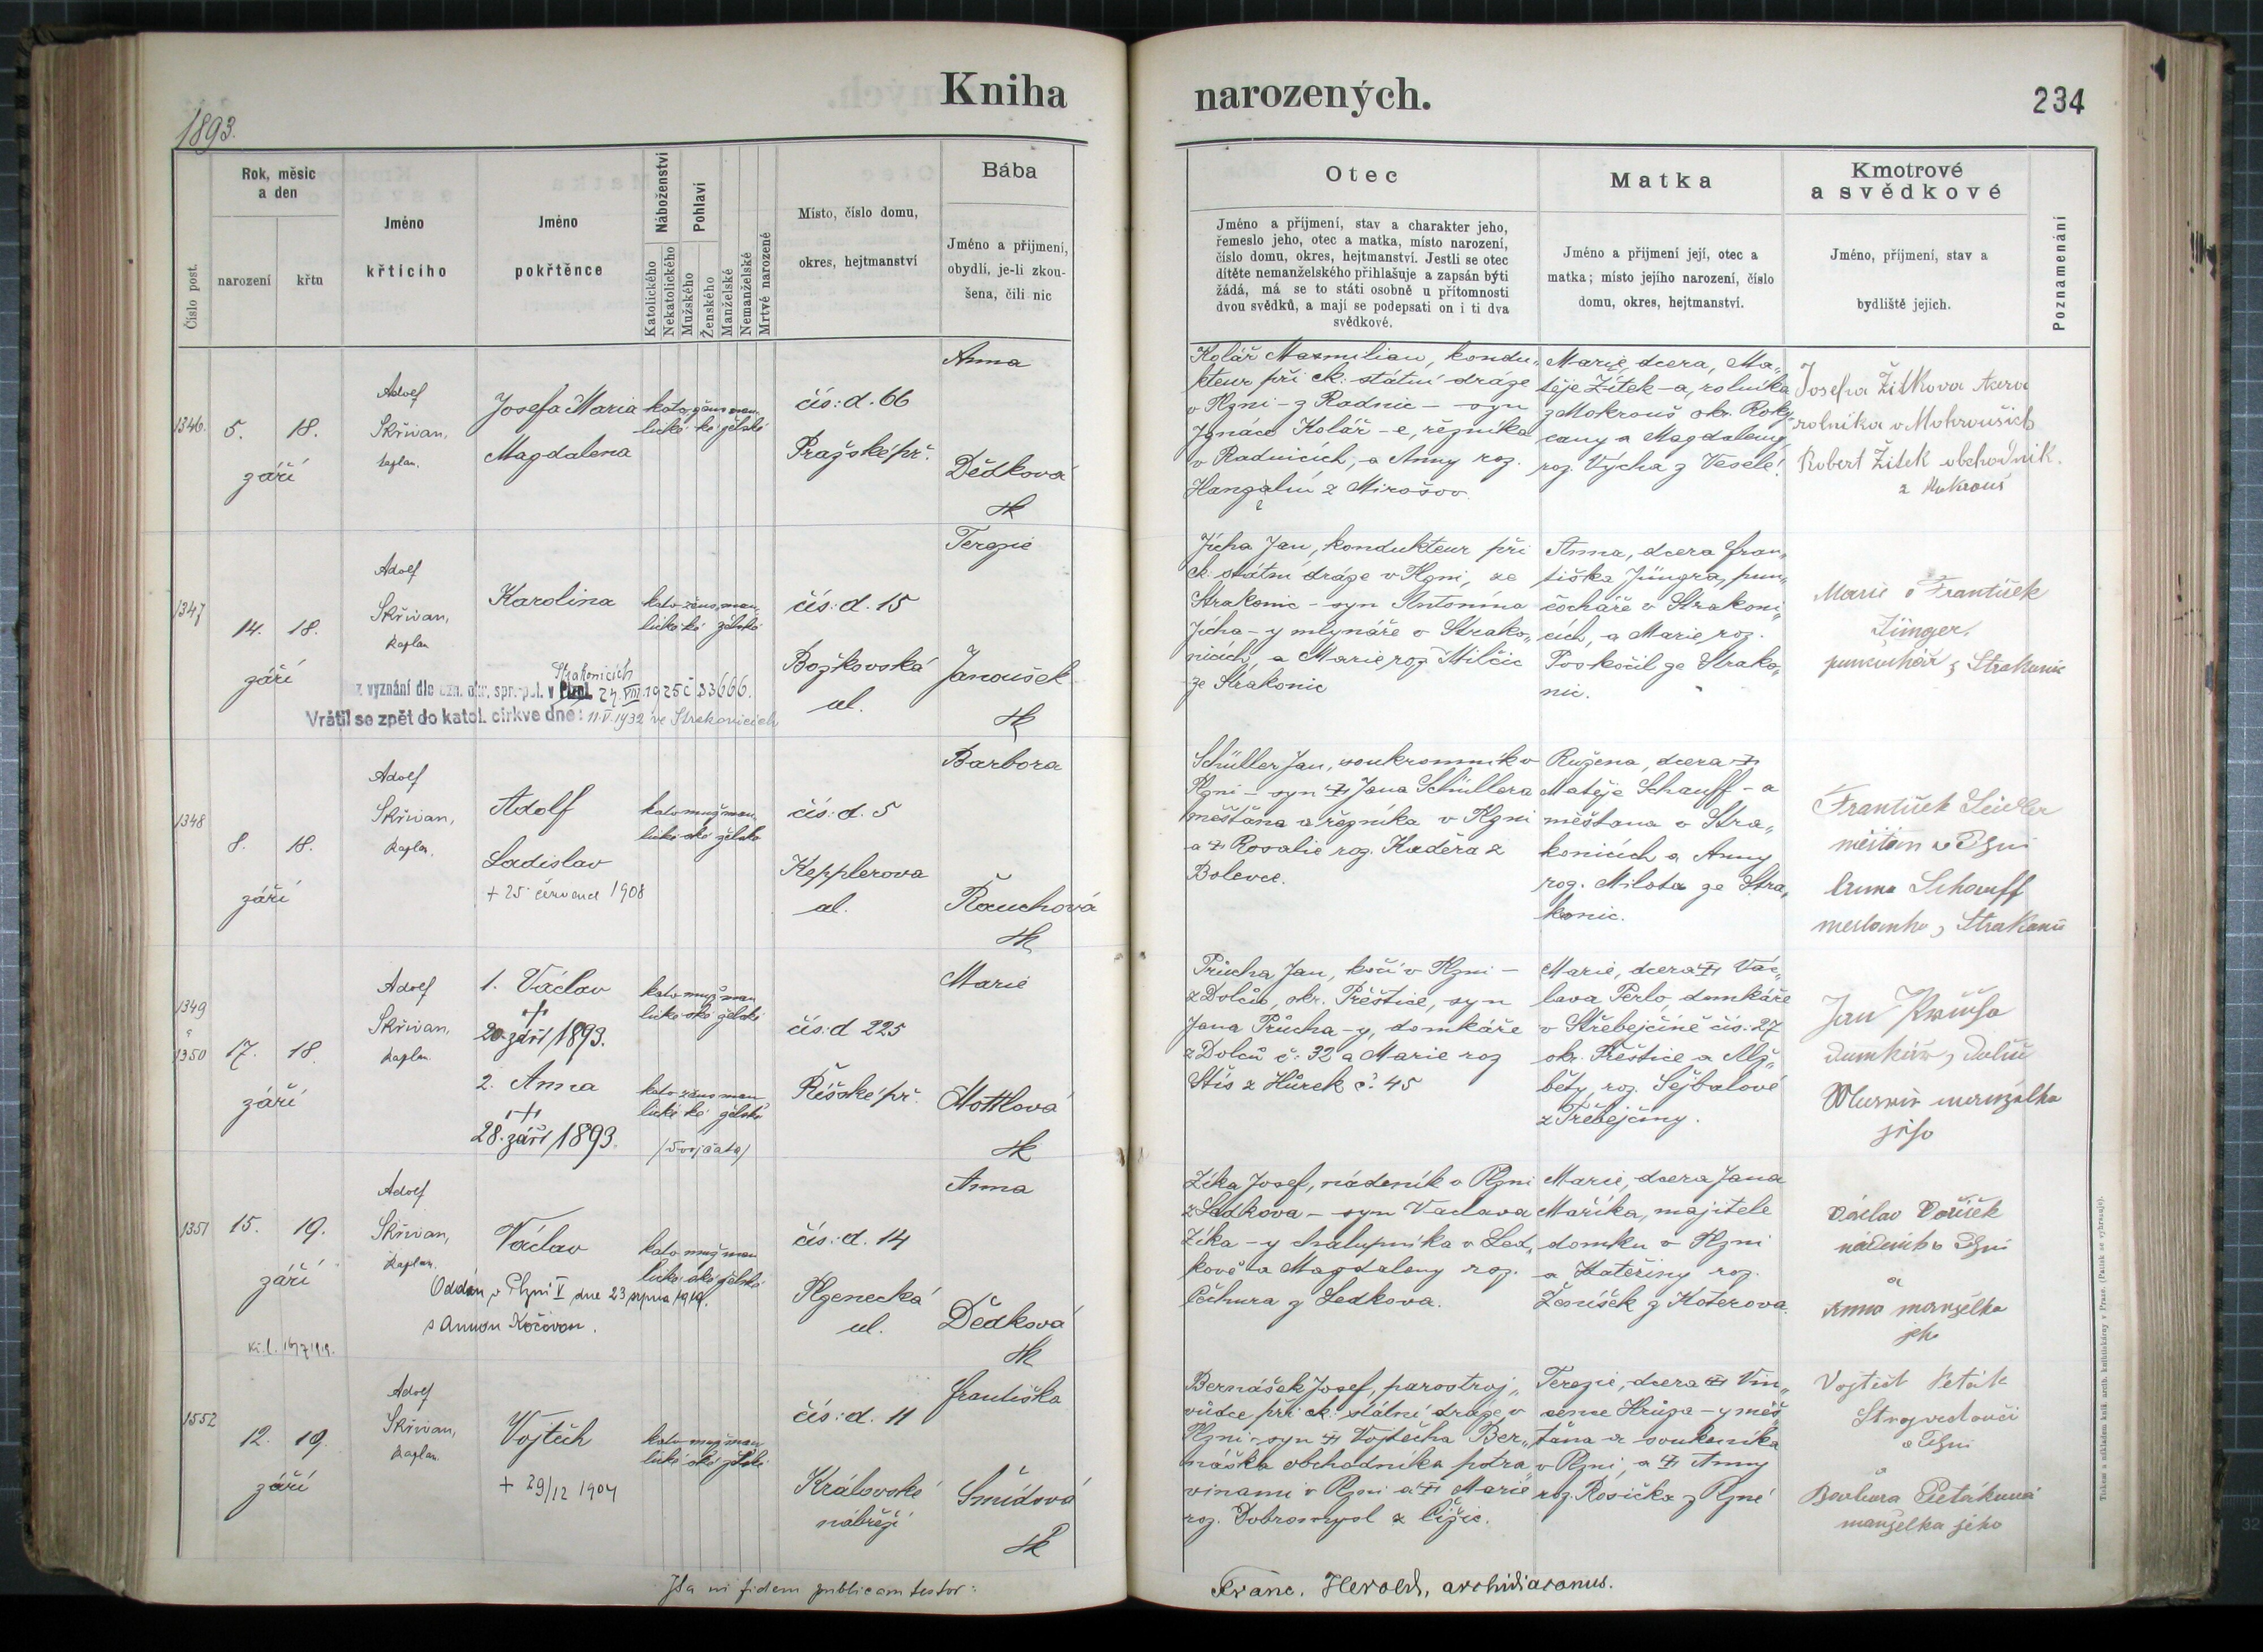 Kniha
narozených.
234
1893.
Číslo post.
Rok, měsíc
a den
narození
křtu
Jméno
křtícího
Jméno
pokřtěnce
Náboženství
Katolického
Nekatolického
Pohlaví
Mužského
Ženského
Manželské
Nemanželské
Mrtvé narozené
Místo, číslo domu,
okres, hejtmanství
Bába
Jméno a přijmení,
obydlí, je-li zkou-
šena, čili nic
Otec
Jméno a příjmení, stav a charakter jeho,
řemeslo jeho, otec a matka, místo narození,
číslo domu, okres, hejtmanství. Jestli se otec
dítěte nemanželského přihlašuje a zapsán býti
žádá, má se to státi osobně u přítomnosti
dvou svědků, a mají se podepsati on i ti dva
svědkové.
Matka
Jméno a přijmení její, otec a
matka; místo jejího narození, číslo
domu, okres, hejtmanství.
Kmotrové
a svědkové
Jméno, příjmení, stav a
bydliště jejich.
Poznamenání
1346.
5. 18.
září
Adolf
Skřivan,
kaplan.
Josefa Maria
Magdalena
kato- žens man-
lické ké želské
čís: d. 66
Pražské př.
Anna
Dědková
zk
Kolář Maxmilian, kondu-
kteur při ck: státní dráze
v Plzni - z Radnic - syn
Ignáce Kolář-e, řezníka
v Radnicích, a Anny roz.
z Mirošov
Marie, dcera, Ma-
těje Žítek-a, rolníka
z Mokrouš okr. Roky-
cany a Magdaleny
roz. Výcha z Veselé!
Josefa Žitkova dcera
rolníka v Mokroušich
Robert Žitek obchodník.
z Mokrouš
1347
14. 18.
září
Adolf
Skřivan,
kaplan
Karolina
kato- žens man-
lické ké želské
čís: d. 15
Božkovská
ul.
Terezie
Janoušek
zk
Strakonicích
z vyznání dle ozn. okr. spr. pol. v Plzni 24 VIII. 1925 č 33666.
Vrátil se zpět do katol. církve dne: 11.V.1932 ve Strakonicích
Jícha Jan, kondukteur při
ck: státní dráze v Plzni, ze
Strakonic - syn Antonína
Jícha-y mlynáře v Strako-
nicích, a Marie roz. Milčic
ze Strakonic
Anna, dcera Fran-
tiška Jüngra, pun-
čocháře v Strakoni-
cích, a Marie, roz.
Poskočil ze Strako-
nic.
Marie a František
Jünger,
punčochář z Strakonic
1348
8. 18.
září
Adolf
Skřivan,
kaplan.
Adolf
Ladislav
+ 25 července 1908
kato muž man-
lické ské želské
čís: d. 5
Kepplerova
ul.
Barbora
Rauchová
zk
Schüller Jan, soukromník v
Plzni - syn Jana Schüllera
měšťana a řezníka v Plzni
a Rosalie roz. Kaděra z
Bolevce.
Růžena, dcera
Matěje Schauff-a
měšťana v Stra-
konicích a Anny
roz. Milota ze Stra-
konic.
František Seidler
měšťan v Plzni
Anna Schauff
z Strakonic
1349
a
1350
17. 18.
září
Adolf
Skřivan,
kaplan.
1. Václav
+
20. září 1893.
2. Anna
+
28. září 1893.
kato muž man
lické ské želské
kato žens man
lické ké želské
/dvojčata/
čís: d 225
Říšské př.
Marie
Mottlová
zk
Průcha Jan, kočí v Plzni -
z Dolců, okr. Přěštice, syn
Jana Průcha-y, domkáře
z Dolců č: 32 a Marie roz
Stís z Hůrek č. 45
Marie, dcera Vác-
lava Perlo, domkáře
v Střebejčíně čís: 27
okr. Přeštice a Alž-
běty, roz. Sejbalové
z Třebejčiny.
Jan
domkář z Dolců
manželka
jeho
1351
15. 19.
září
Adolf
Skřivan,
kaplan.
Václav
kato muž man
lické ské želské
čís: d. 14
Plzenecká
ul.
Anna
Dědková
zk
Oddán v Plzni V dne 23 srpna 1919.
s Annou Kočovou.
Zíka Josef, nádeník v Plzni
z Ledkova - syn Václava
Zíka-y chalupníka v Led-
kově a Magdaleny roz.
Čechura z Ledkova.
Marie, dcera Jana
Maříka, majitele
domku v Plzni
a Kateřiny roz.
Ženíšek z Koterova.
Václav Voříšek
nádeník v Plzni
a
Anna manželka
jeho
1552
12. 19.
září
Adolf
Skřivan,
kaplan
Vojtěch
+ 29/12 1904
kato muž man
lické ské želské
čís: d. 11
Královské
nábřeží
Františka
Šmídová
zk
Bernášek Josef, parostroj-
vůdce při ck: státní dráze v
Plzni - syn Vojtěcha Ber-
náška obchodníka potra-
vinami v Plzni a Marie
roz. Dobromysl z Čižic.
Terezie, dcera Vin-
cence Hrůza-y měš-
ťana a soukeníka
v Plzni, a Anny
roz. Rosička z Plzně
Vojtěch Peták
Strojvedoucí
v Plzni
Barbora Petáková
manželka jeho
Ita in fidem publicam testor:
Franc. Herold, archidiaconus.